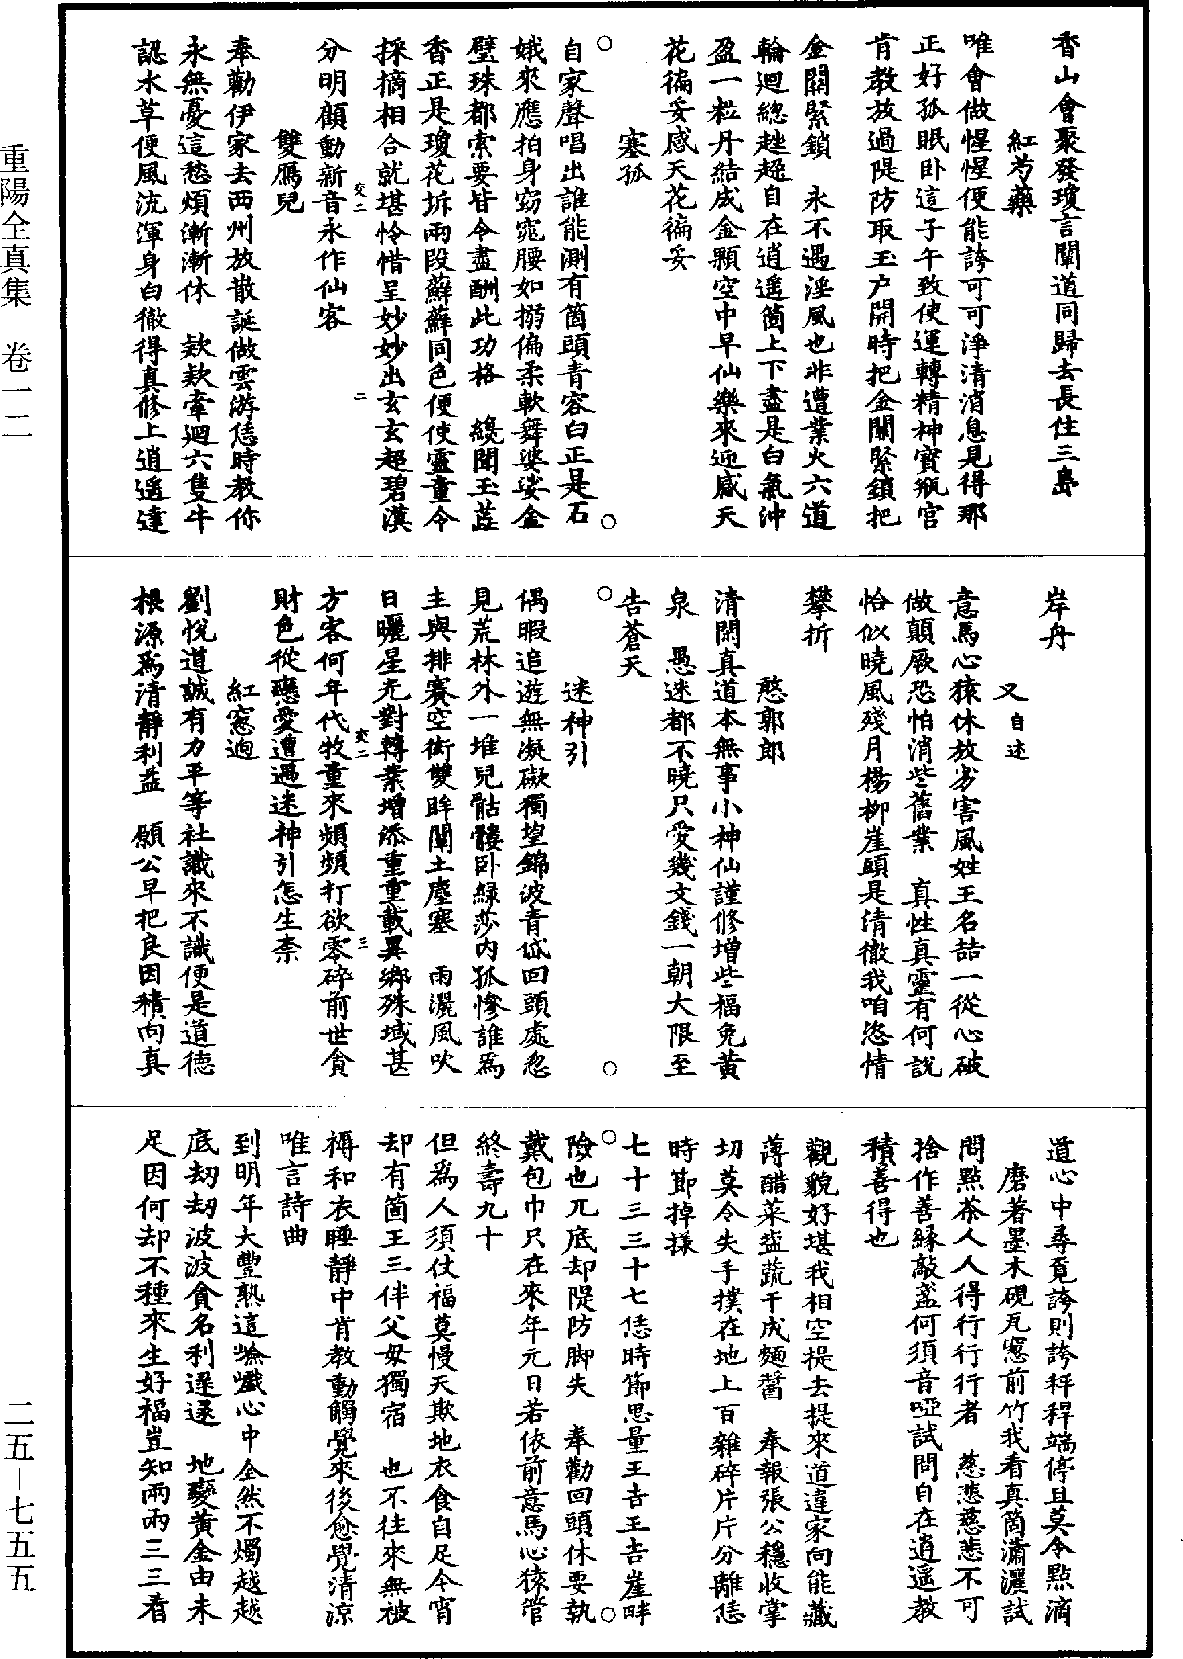 香山會聚發瓊言闡道同歸去長住三島
紅芍藥
唯會做惺惺便能誇可可淨清消息見得那
正好孤眠卧這子午致使運轉精神寳瓶宮
肯教放過隄防取玉户開時把金關緊鎖把
金關緊鎖　永不遇淫風也非遭業火六道
輪迴總趓趍自在逍遥箇上下盡是白氣沖
盈一粒丹結成金顆空中早仙樂來迎感天
花徧妥感天花徧妥
塞孤
自家聲唱出誰能測有箇頭青容白正是石
娥來應拍身窈窕腰如搦偏柔軟舞婆娑金
璧珠都索要皆令盡酬此功格　纔聞玉蕋
香正是瓊花坼兩段蘇蘇同色便使靈童令
採摘相合就堪怜惜呈妙妙出玄玄超碧漢
分明顧動新音永作仙客
雙鴈兒
奉勸伊家去西州放散誕做雲游恁時教你
永無憂這愁煩漸漸休　欵欵牽迴六隻牛
認水草便風流渾身白徹得真修上逍遥達
岸舟
又自述
意馬心猿休放劣害風姓王名喆一從心破
做顛厥恐怕消些舊業　真性真靈有何說
恰似曉風殘月楊柳崖頭是清徹我咱恣情
攀折
憨郭郎
清閑真道本無事小神仙謹修增些福免黄
泉　愚迷都不曉只愛幾文錢一朝大限至
告蒼天
迷神引
偶暇追遊無凝礙獨望錦波青岱回頭處忽
見荒林外一堆兒骷髏卧緑莎内孤慘誰爲
主與排賽空衘雙眸闡土塵塞　雨灑風吹
日曬星光對轉業增添重重載異鄉殊域甚
方客何年代牧童來頻頻打欲零碎前世貪
財色從戀愛遭遇迷神引怎生柰
紅窻迥
劉悦道誠有力平等社識來不識便是道德
根源爲清靜利益　願公早把良因積向真
道心中尋覓誇則誇秤稈端停且莫令㸃滴
磨著墨木硯瓦窻前竹我看真箇瀟灑試
問㸃茶人人得行行行者　慈悲慈悲不可
捨作善縁敲盞何須音啞試問自在逍遥教
積善得也
觀貌好堪我相空提去提來道違家向能藏
薄醋菜虀蔬干成麵醬　奉報張公穩收掌
切莫令失手撲在地上百雜碎片片分離恁
時節掉㨾
七十三三十七恁時節思量王吉王吉崖畔
險也兀底却隄防脚失　奉勸回頭休要執
戴包巾只在來年元日若依前意馬心猿管
終壽九十
但爲人須仗福莫慢天欺地衣食自足今宵
却有箇王三伴父母獨宿　也不往來無被
褥和衣睡靜中肯教動觸覺來後愈覺清涼
唯言詩曲
到明年大豐熟這㜅㜕心中全然不燭越越
底刼刼波波貪名利遲遲　地變黄金由未
足因何却不種來生好福豈知兩兩三三看
重陽全真集　卷一二
二五—七五五